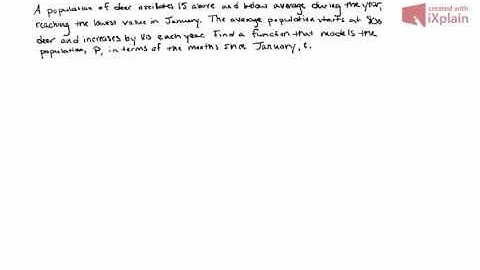 A population of deer oscillates 15 above and below average during the year,
reaching the lowest value in January. The average population starts at 800
deer and increases by 80 each year. Find a function that models the
population, P, in terms of the months since January, t.
created with
iXplain